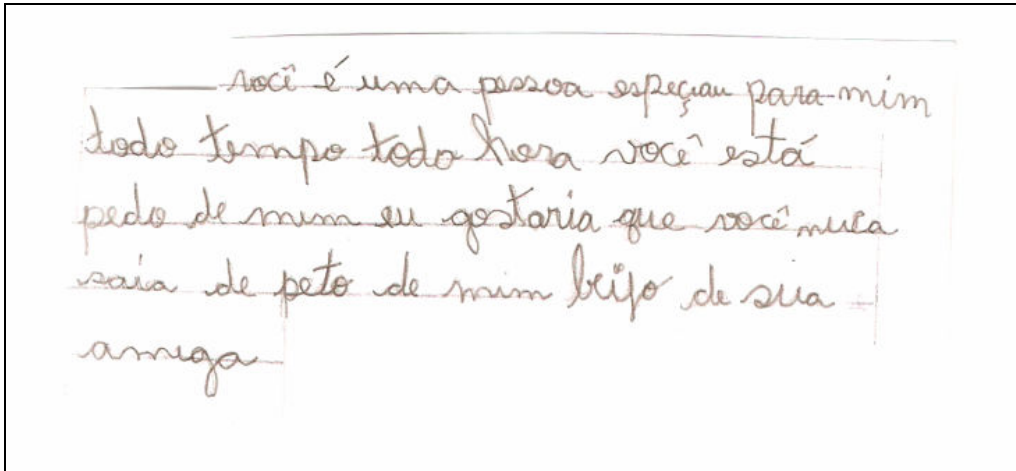 você é uma pessoa espeçiau para mim
todo tempo todo hora você está
pedo de mim eu gostaria que você nuca
saia de peto de mim beijo de sua
amiga